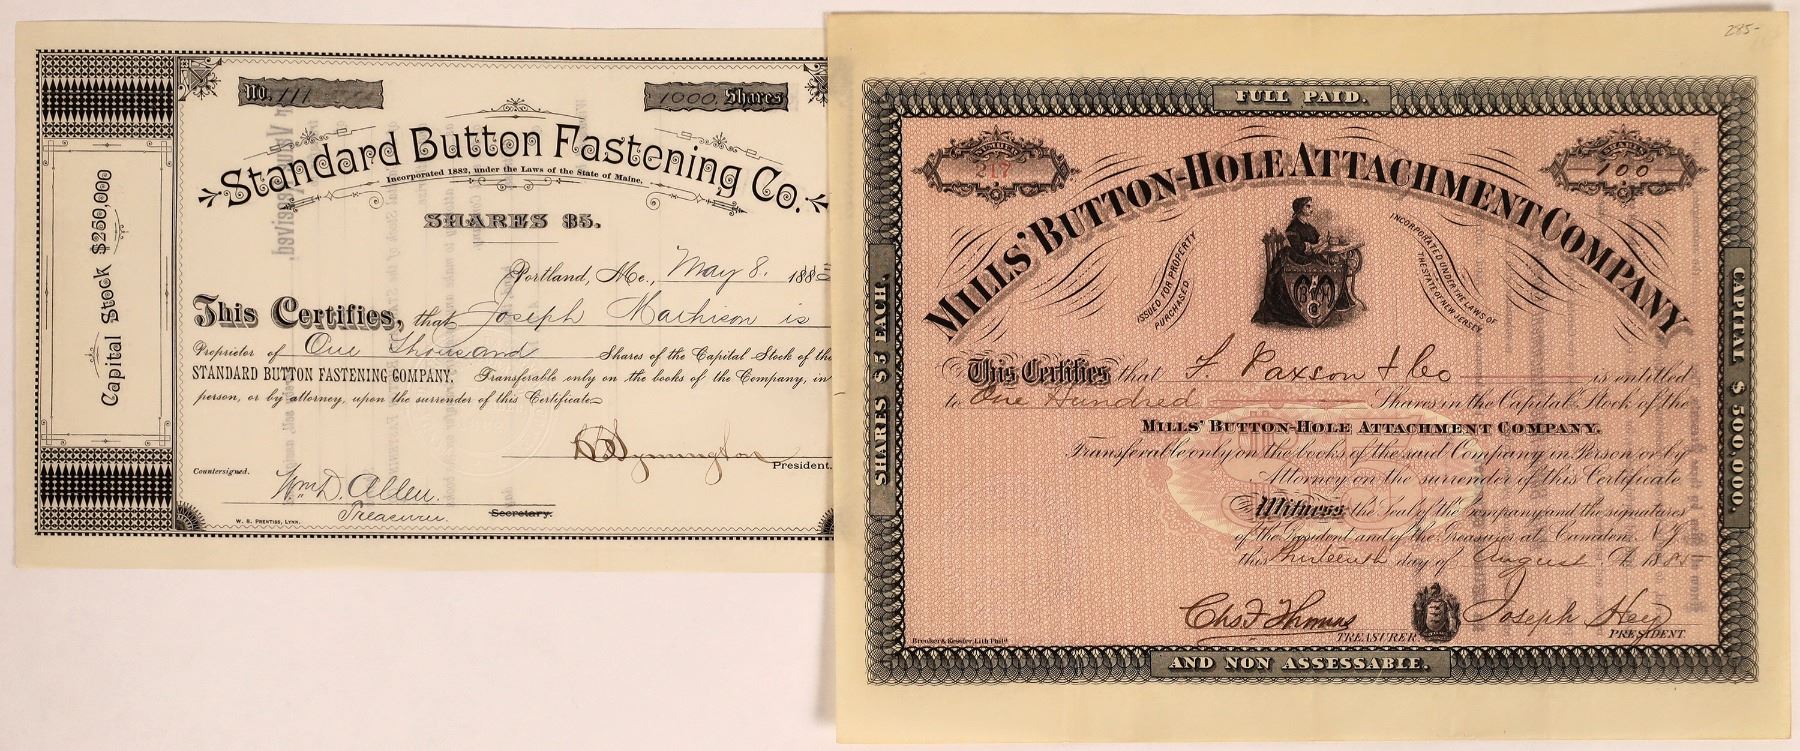 No. 111
1000 Shares
Standard Button Fastening Co.
Incorporated 1882, under the Laws of the State of Maine.
SHARES $5.
Capital Stock $250,000
Portland, Me., May 8. 188
This Certifies, that Joseph Mathison is
Proprietor of One Thousand Shares of the Capital Stock of the
STANDARD BUTTON FASTENING COMPANY, Transferable only on the books of the Company, in
person, or by attorney, upon the surrender of this Certificate
President.
Countersigned.
Wm D. Allen.
Treasurer.
Secretary.
W. S. PRENTISS, LYNN.
285-
FULL PAID.
NUMBER
217
SHARES
100
MILLS' BUTTON-HOLE ATTACHMENT COMPANY
ISSUED FOR PROPERTY
PURCHASED.
INCORPORATED UNDER THE LAWS OF
THE STATE OF NEW JERSEY.
SHARES $5 EACH.
CAPITAL $500,000.
This Certifies that F Paxson & Co is entitled
to One Hundred Shares in the Capital Stock of the
MILLS' BUTTON-HOLE ATTACHMENT COMPANY.
Transferable only on the books of the said Company in Person or by
Attorney on the surrender of this Certificate
Witness the Seal of the Company and the signatures
of the President and of the Treasurer at Camden, N.J.
this thirteenth day of August A.D. 188
Chas F Thomas
TREASURER
Joseph Hey
PRESIDENT
Breuker & Kessler, Lith Phila
AND NON ASSESSABLE.